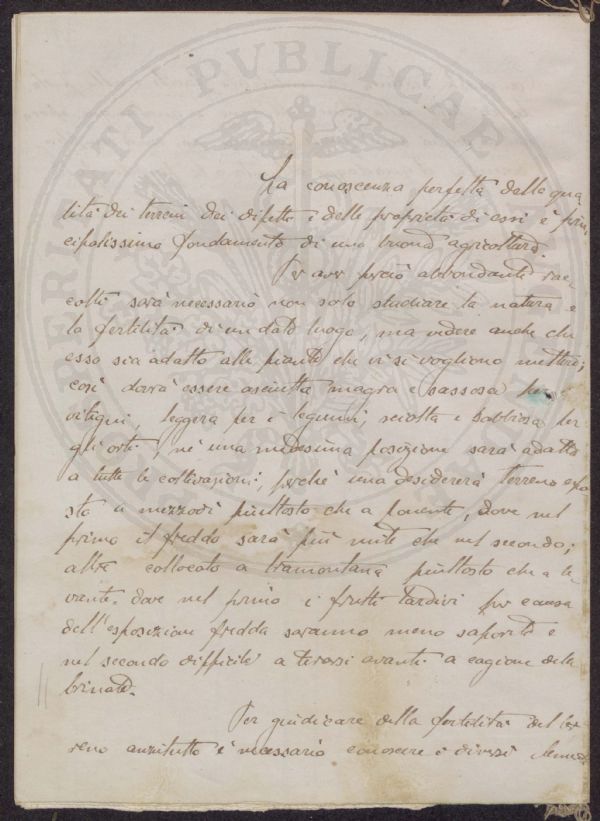 La conoscenza perfetta delle qua
lità dei terreni dei difetti e delle proprietà di essi è prin
cipalissimo fondamento di una buona agricoltura.
Per aver perciò abbondanti rac
colti sarà necessario non solo studiare la natura e
la fertilità di un dato luogo, ma vedere anche che
esso sia adatto alle piante che vi si vogliono mettere;
così dovrà essere asciutta magra e sassosa per i
vitigni, leggera per i legumi, sciolta e sabbiosa per
gli orti, nè una medesima posizione sarà adatta
a tutte le coltivazioni; perchè una desidererà terreno espo
sto a mezzodì piuttosto che a ponente, dove nel
primo il freddo sarà più mite che nel secondo;
altre collocato a tramontana piuttosto che a le
vante, dove nel primo i frutti tardivi per causa
dell'esposizione fredda saranno meno saporiti e
nel secondo difficile a tirarsi avanti a cagione delle
brinate.
Per giudicare della fertilità del ter
reno anzitutto è necessario conoscere i diversi
PVBLICAE